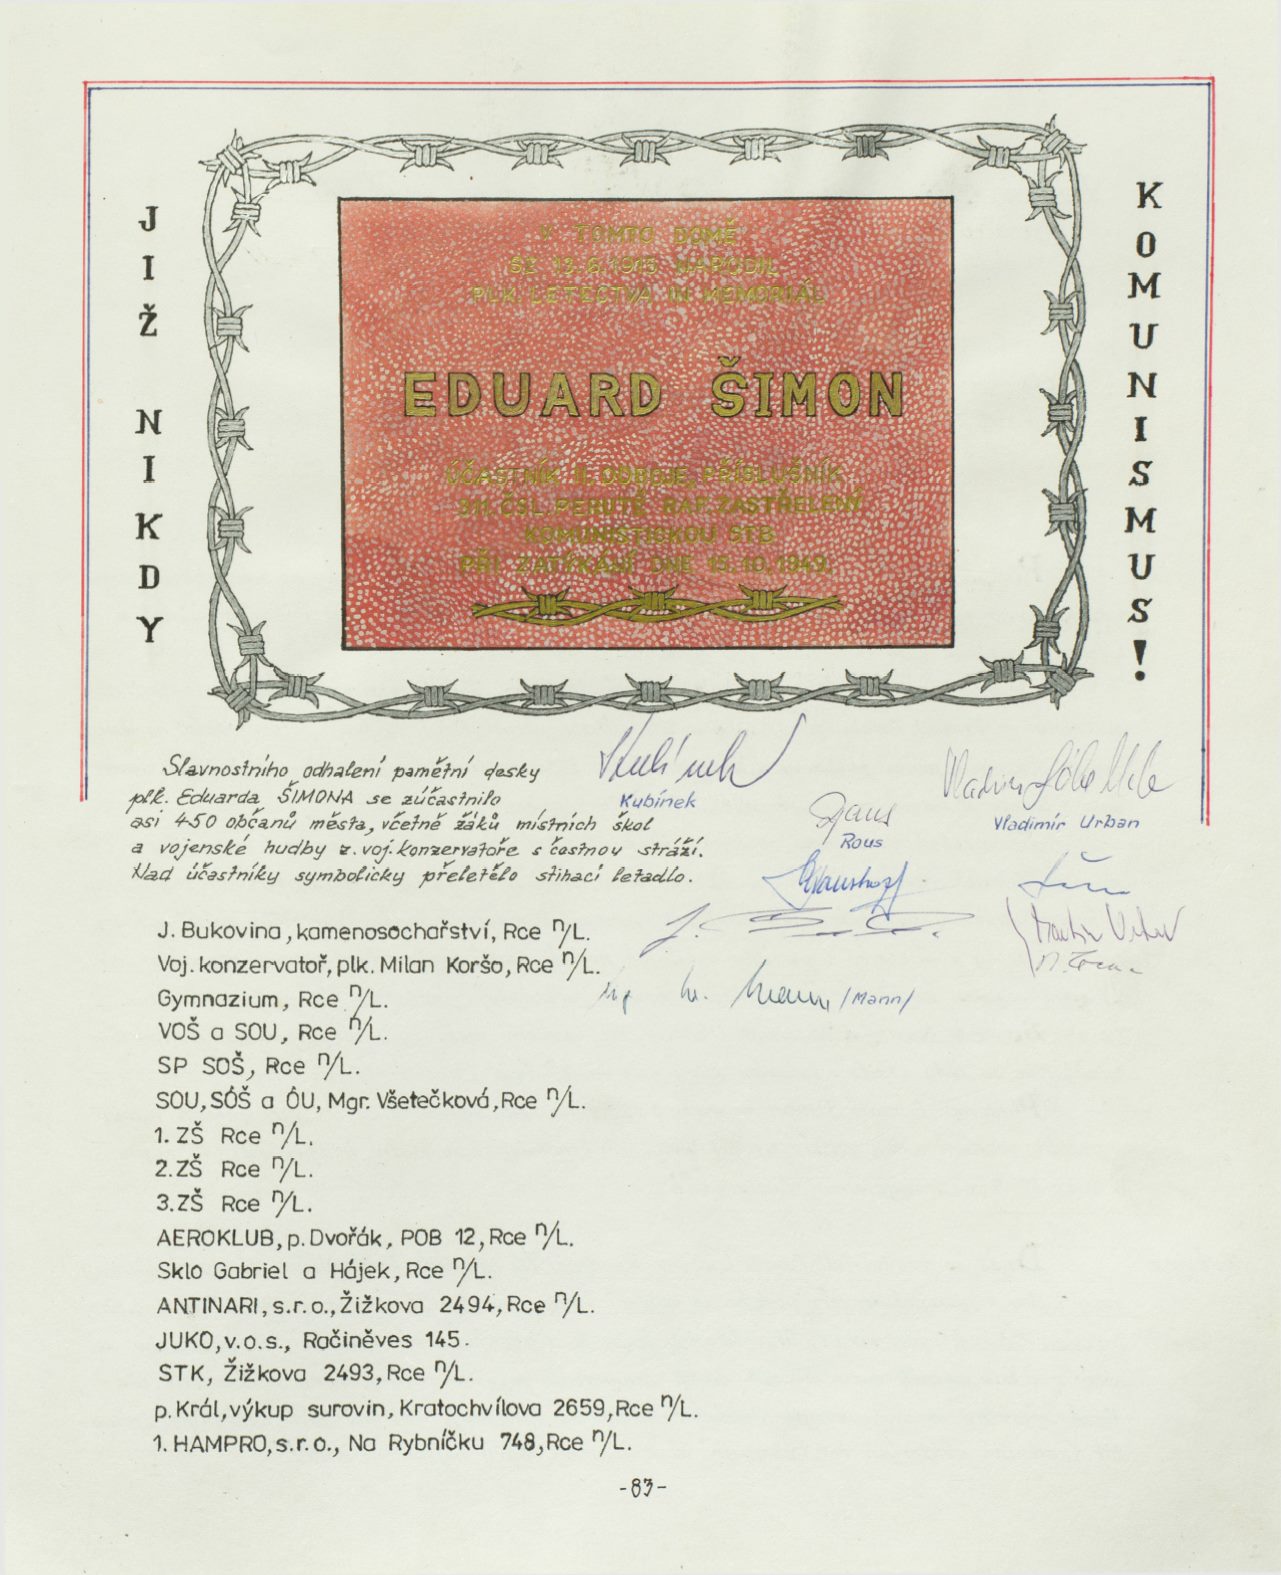 JIŽ NIKDY
KOMUNISMUS!
V TOMTO DOMĚ
SE 12.6.1915 NARODIL
PLK. LETECTVA IN MEMORIÁL
EDUARD ŠIMON
ÚČASTNÍK II. ODBOJE, PŘÍSLUŠNÍK
311. ČSL. PERUTĚ RAF. ZASTŘELENÝ
KOMUNISTICKOU STB
PŘI ZATÝKÁNÍ DNE 15.10.1949.
Slavnostního odhalení pamětní desky
plk. Eduarda ŠIMONA se zúčastnilo
asi 450 občanů města, včetně žáků místních škol
a vojenské hudby z voj. konzervatoře s čestnou stráží.
Nad účastníky symbolicky přeletělo stíhací letadlo.
Kubínek
Rous
Vladimír Urban
/Mann/
J. Bukovina, kamenosochařství, Rce n/L.
Voj. konzervatoř, plk. Milan Koršo, Rce n/L.
Gymnazium, Rce n/L.
VOŠ a SOU, Rce n/L.
SP SOŠ, Rce n/L.
SOU, SOŠ a OU, Mgr. Všetečková, Rce n/L.
1. ZŠ Rce n/L.
2. ZŠ Rce n/L.
3. ZŠ Rce n/L.
AEROKLUB, p. Dvořák, POB 12, Rce n/L.
Sklo Gabriel a Hájek, Rce n/L.
ANTINARI, s.r.o., Žižkova 2494, Rce n/L.
JUKO, v.o.s., Račiněves 145.
STK, Žižkova 2493, Rce n/L.
p. Král, výkup surovin, Kratochvílova 2659, Rce n/L.
1. HAMPRO, s.r.o., Na Rybníčku 748, Rce n/L.
-83-